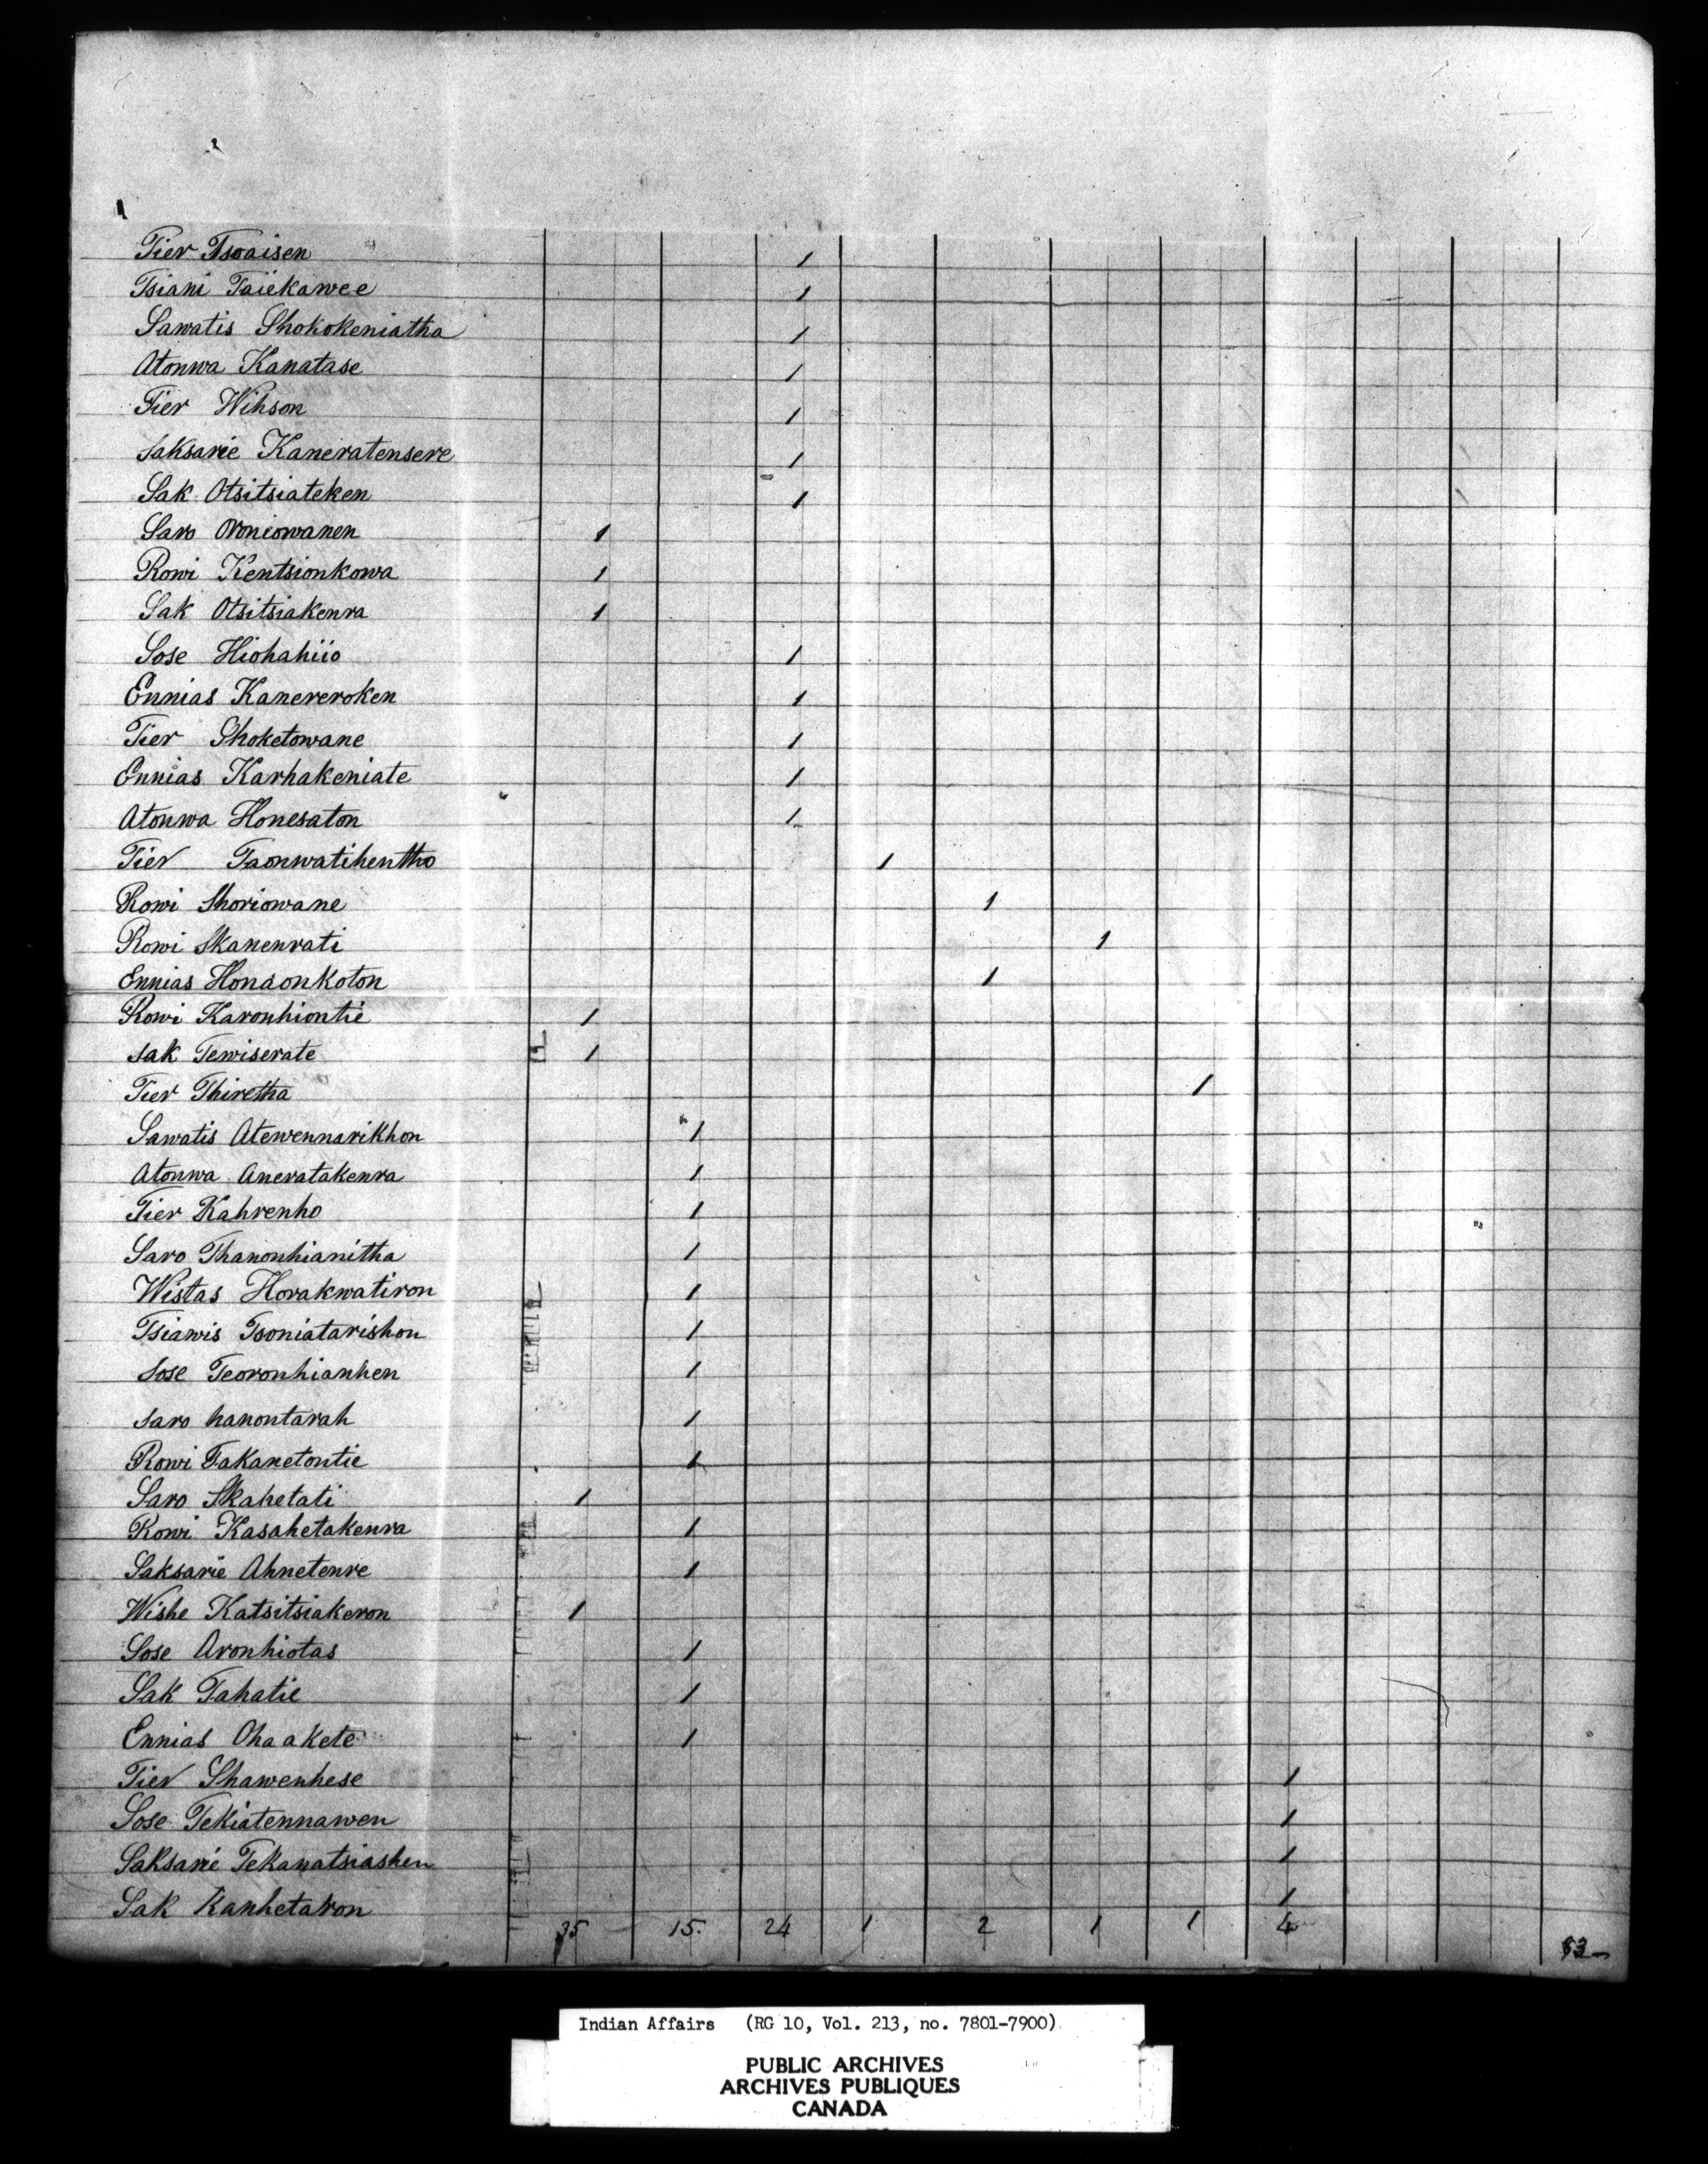 Tier Tsoaisen 1
Tsiani Taiekawee 1
Sawatis Shokokeniatha 1
Atonwa Kanatase 1
Tier Wihson 1
Saksarie Kaneratensere 1
Sak Otsitsiateken 1
Saro Oroniowanen 1
Rowi Kentsionkowa 1
Sak Otsitsiakenra 1
Sose Hiohahiio 1
Ennias Kanereroken 1
Tier Shoketowane 1
Ennias Karhakeniate 1
Atonwa Honesaton 1
Tier Taonwatihentho 1
Rowi Shoriowane 1
Rowi Skanenrati 1
Ennias Honaonkoton 1
Rowi Karonhiontie 1
Sak Tewiserate 1
Tier Thiretha 1
Sawatis Atewennarikhon 1
Atonwa Aneratakenra 1
Tier Kahrenho 1
Saro Thanonhianitha 1
Wistas Horakwatiron 1
Tsiawis Tsoniatarishon 1
Sose Teoronhianhen 1
Saro hanontarah 1
Rowi Takanetontie 1
Saro Skahetati 1
Rowi Kasahetakenra 1
Saksarie Ahnetenre 1
Wishe Katsitsiakeron 1
Sose Aronhiotas 1
Sak Tahatie 1
Ennias Ohaakete 1
Tier Shawenhese 1
Sose Tekiatennawen 1
Saksarie Tekanatsiashen 1
Sak Kanhetaron 1
35 15. 24 1 2 1 1 4
Indian Affairs (RG 10, Vol. 213, no. 7801-7900)
PUBLIC ARCHIVES
ARCHIVES PUBLIQUES
CANADA